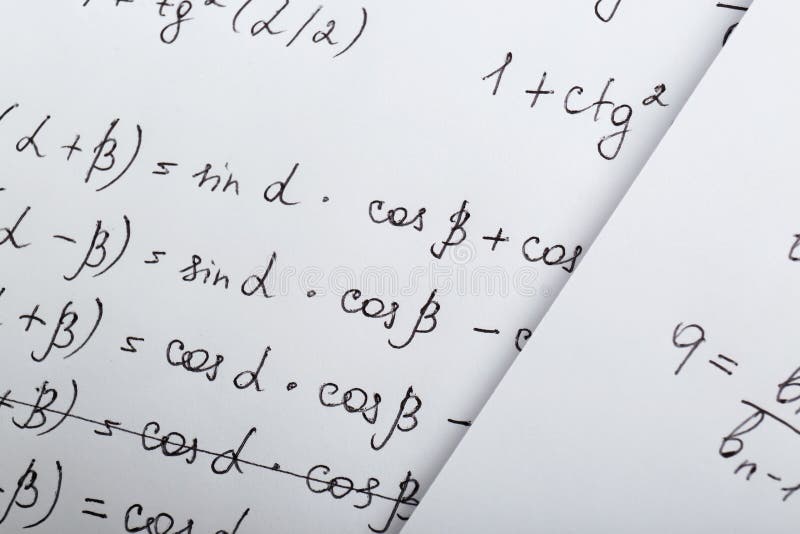 1 + tg²(α/2)
1 + ctg²
(α + β) = sin α · cos β + cos
α - β) = sin α · cos β -
+ β) = cos α · cos β -
+ β) = cos α · cos β
- β) = cos α
q = bₙ / bₙ₋₁
dreamstime